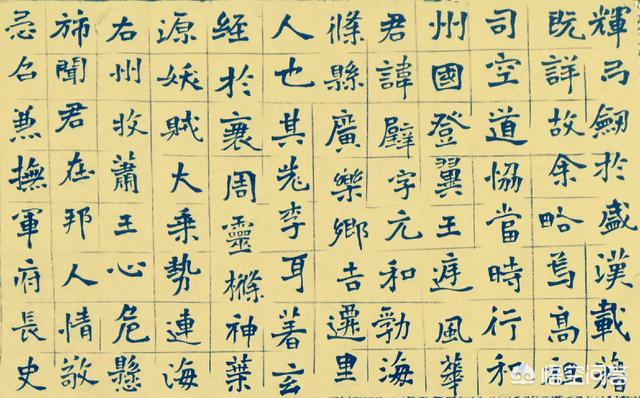 輝弓劒於盛漢載籍
既詳故余略焉高祖
司空道協當時行和
州國登翼王庭風華
君諱璧字元和勃海
蓨縣廣樂鄉吉遷里
人也其先李耳著玄
經於衰周靈樤神葉
源妖賊大乘勢連海
右州牧蕭王心危懸
斾聞君在邦人情敬
忌召兼撫軍府長史
悟空问答